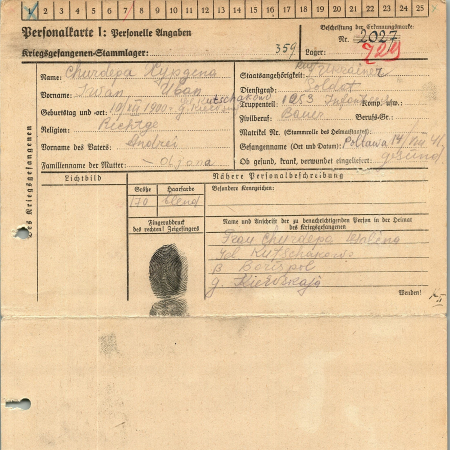 1 2 3 4 5 6 7 8 9 10 11 12 13 14 15 16 17 18 19 20 21 22 23 24 25
Personalkarte I: Personelle Angaben
Beschriftung der Erkennungsmarke
Nr. 2027
Kriegsgefangenen-Stammlager: 359
Lager: 729
Des Kriegsgefangenen
Name: Churdepa
Staatsangehörigkeit: Ukrainer
Vorname: Iwan Иван
Dienstgrad: Soldat
Truppenteil: 1253 Komp. usw.:
Geburtstag und -ort: 10/VII 1900
Zivilberuf: Bauer Berufs-Gr.:
Religion:
Matrikel Nr. (Stammrolle des Heimatstaates):
Vorname des Vaters: Andrei
Gefangennahme (Ort und Datum): Poltawa 14/VIII 41
Familienname der Mutter:
Ob gesund, krank, verwundet eingeliefert: gesund
Lichtbild
Nähere Personalbeschreibung
Größe Haarfarbe Besondere Kennzeichen:
170 blond
Fingerabdruck
des rechten! Zeigefingers
Name und Anschrift der zu benachrichtigenden Person in der Heimat
des Kriegsgefangenen
Frau Churdepa
Borispol
g. Kiewskaja
Wenden!